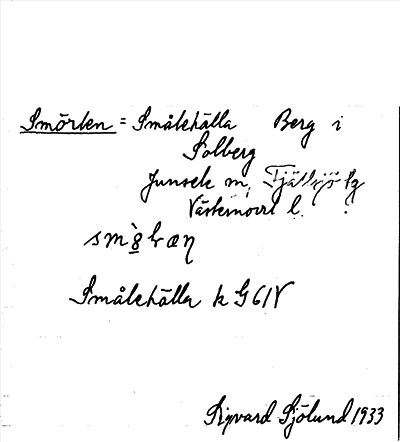 Smörken = Smålehälla Berg i
Solberg
Junsele sn, Fjällsjö tg
Västernorrl l.
Smålehälla k G 61V
Sigvard Sjölund 1933